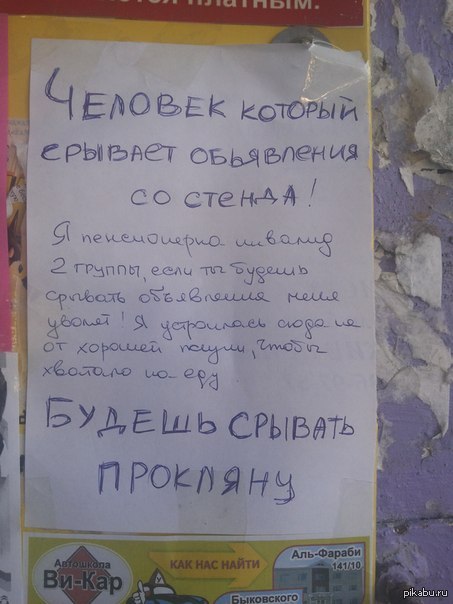 платным.
ЧЕЛОВЕК КОТОРЫЙ
СРЫВАЕТ ОБЬЯВЛЕНИЯ
СО СТЕНДА!
Я пенсионерка инвалид
2 группы, если ты будешь
срывать объявления меня
уволят! Я устроилась сюда не
от хорошей жизни, чтобы
хватало на еду
БУДЕШЬ СРЫВАТЬ
ПРОКЛЯНУ
Автошкола
Ви-Кар
КАК НАС НАЙТИ
Аль-Фараби
141/10
Быковского
pikabu.ru